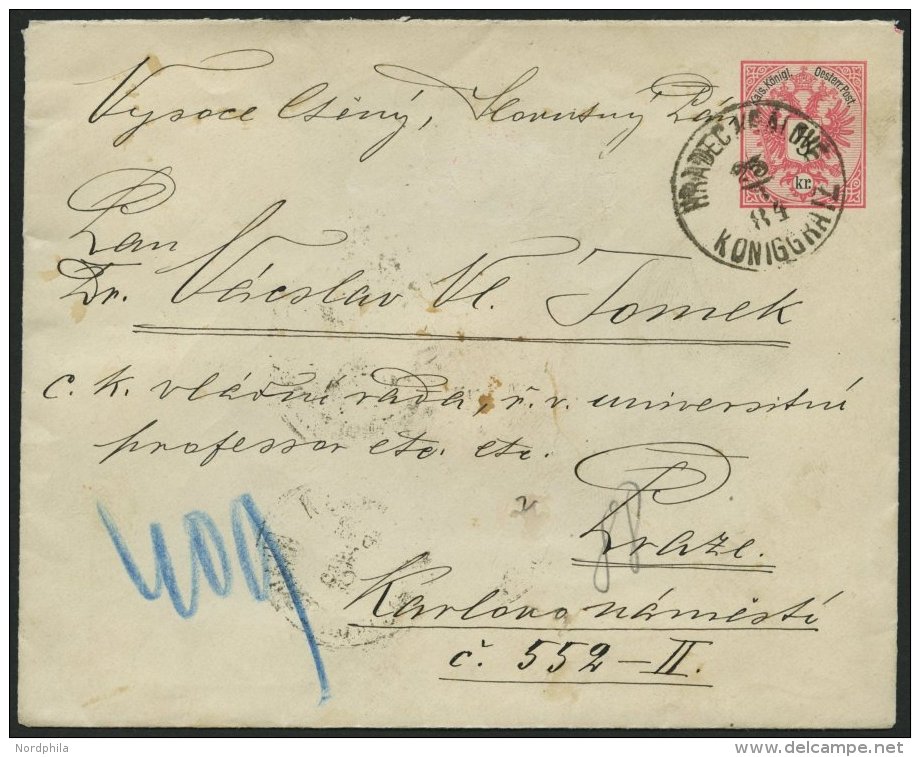 Kais. Königl. Oesterr. Post.
5
kr.
HRADEC KRÁLOVÉ
84
KÖNIGGRÄTZ
Vysoce Ctěný, Slovutný Pán
Pan
Dr. Václav Vl. Tomek
c. k. vládní rada, ř. v. universitní
professor etc. etc.
Praze.
Karlovo náměstí
č. 552-II.
Nordphila
www.delcampe.net